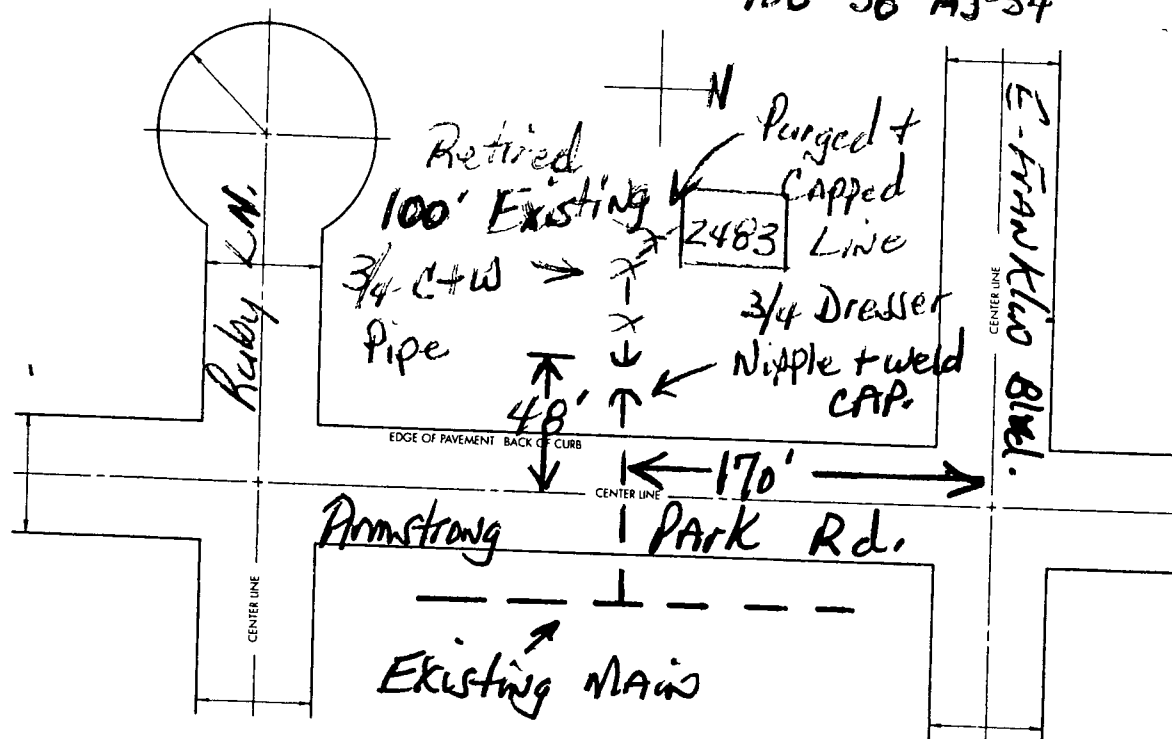 N
Retired
100' Existing
3/4 C+W
Pipe
Purged +
Capped
Line
2483
3/4 Dresser
Nipple + weld
CAP.
Ruby LN.
E-FrANKlin Blvd.
CENTER LINE
48'
EDGE OF PAVEMENT BACK OF CURB
170'
CENTER LINE
Armstrong PArK Rd.
CENTER LINE
Existing MAin